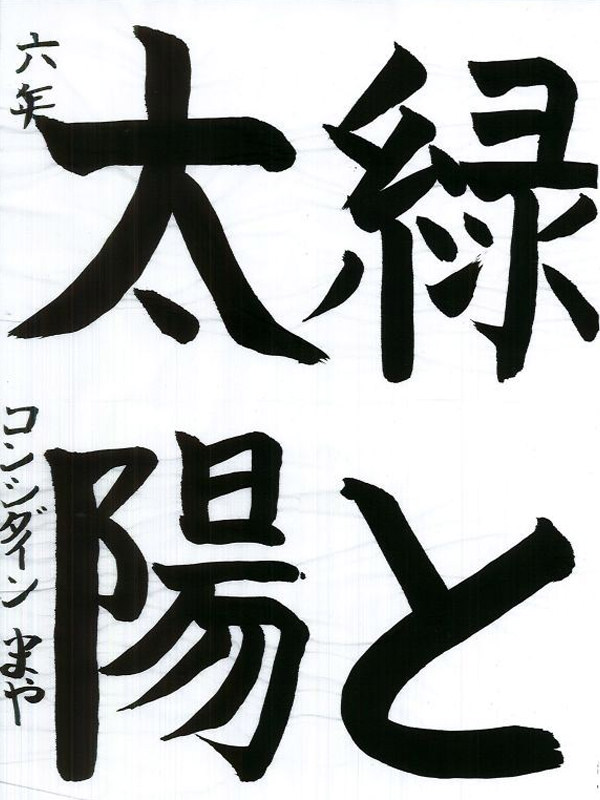 緑と
太陽
六年
コンシダイン まや